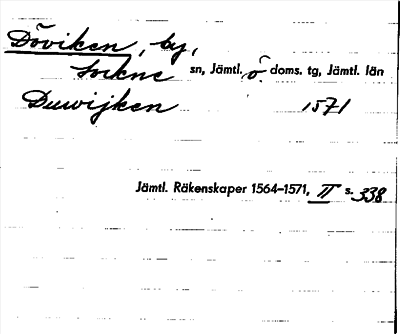 Döviken, by,
Lockne sn, Jämtl. ö. doms. tg, Jämtl. län
Duwijken 1571
Jämtl. Räkenskaper 1564–1571, II s. 338